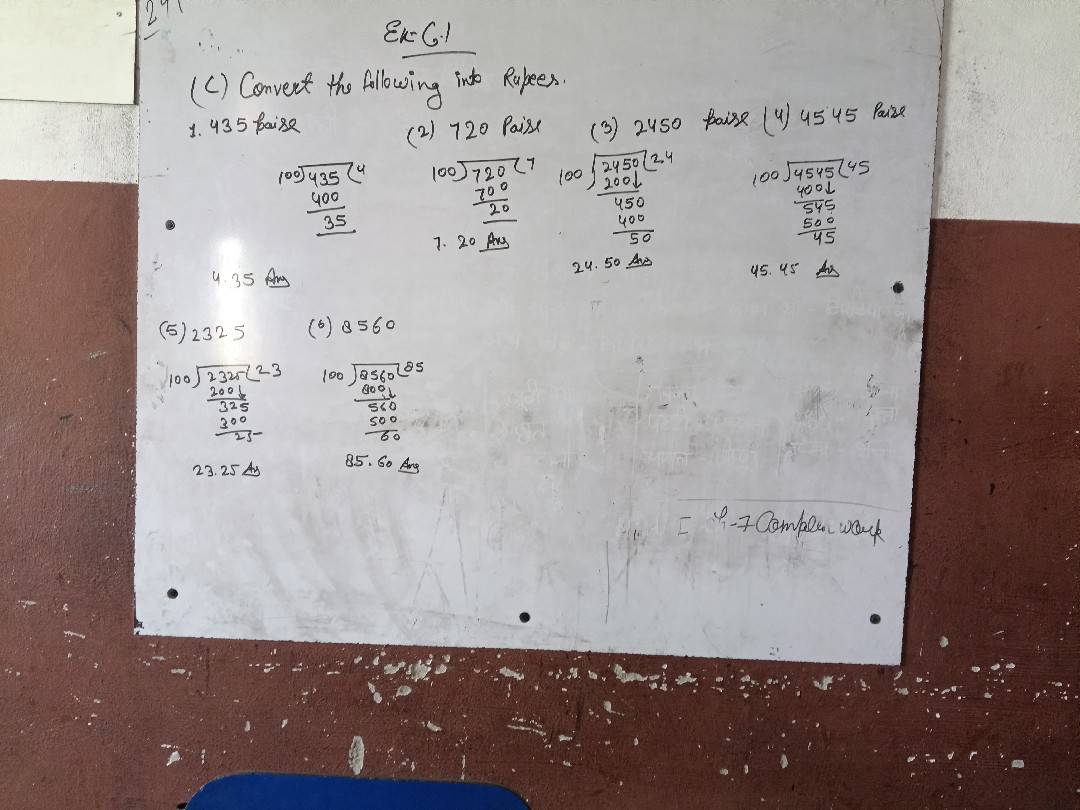 241
Ex-6.1
(C) Convert the following into Rupees.
1. 435 paise (2) 720 Paise (3) 2450 paise (4) 4545 Paise
100)435(4
400
35
4.35 Ans
100)720(7
700
20
7.20 Ans
100)2450(24
200↓
450
400
50
24.50 Ans
100)4545(45
400↓
545
500
45
45.45 Ans
(5) 2325 (6) 8560
100)2325(23
200↓
325
300
25
23.25 As
100)8560(85
800↓
560
500
60
85.60 Ans
work